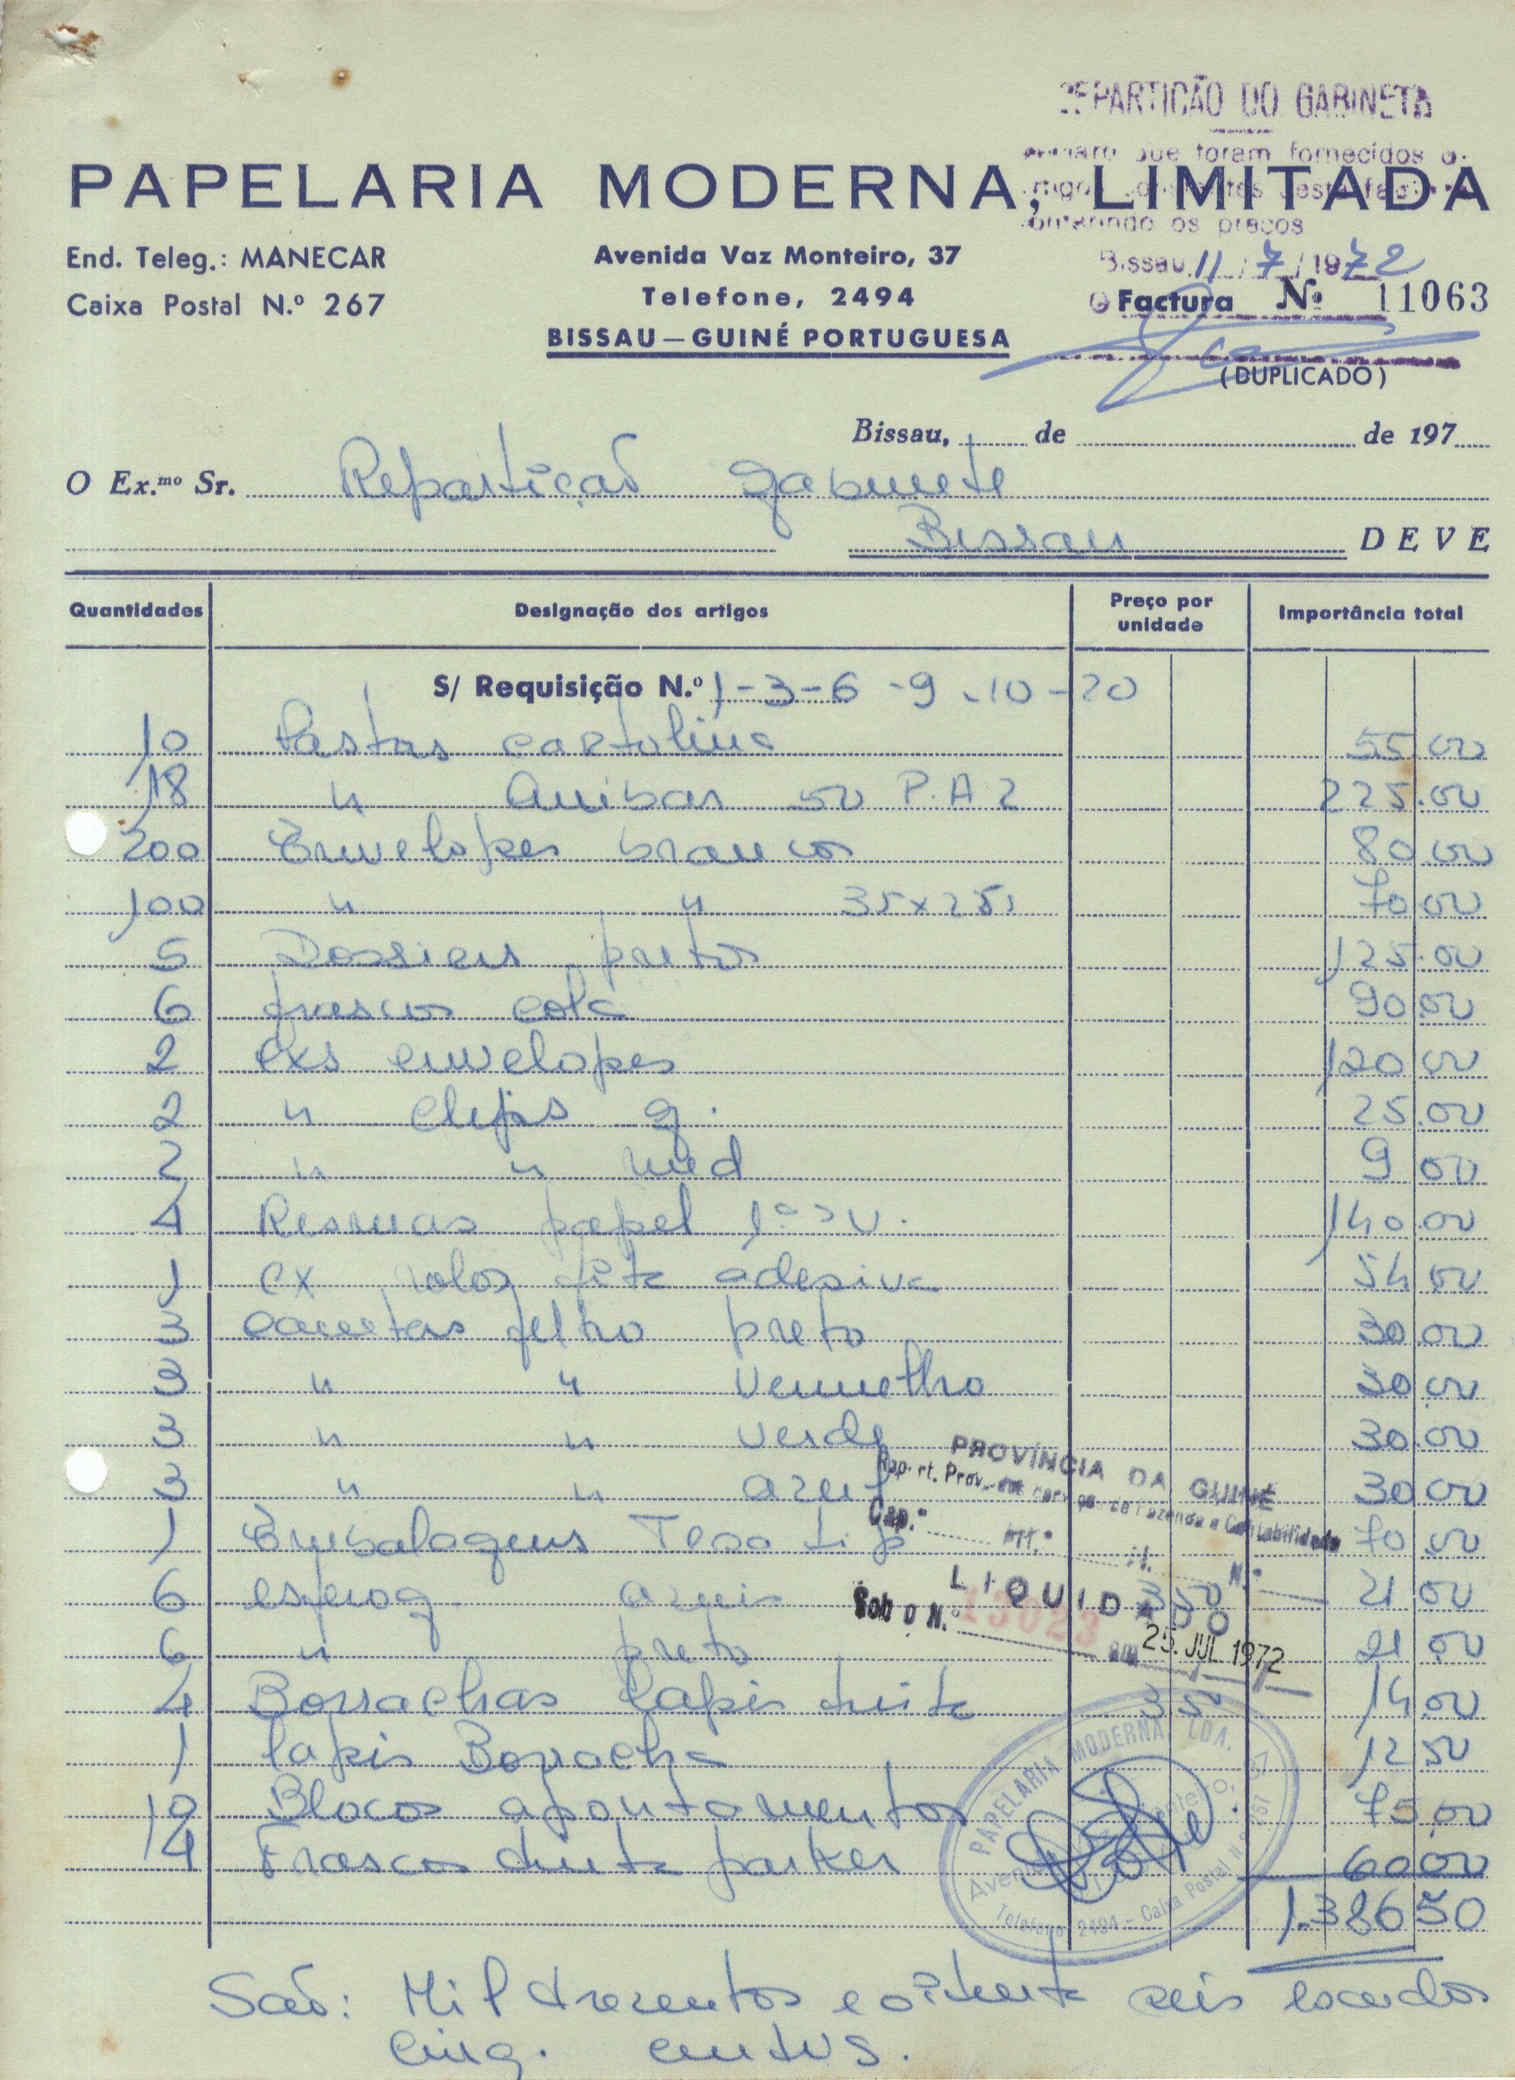 REPARTIÇÃO DO GABINETE
que foram fornecidos
PAPELARIA MODERNA, LIMITADA
os preços
End. Teleg.: MANECAR
Avenida Vaz Monteiro, 37
Bissau 11/7/1972
Caixa Postal N.º 267
Telefone, 2494
Factura Nº 11063
BISSAU — GUINÉ PORTUGUESA
(DUPLICADO)
Bissau, de de 197
O Ex.mo Sr. Repartição Gabinete
Bissau DEVE
Quantidades Designação dos artigos Preço por unidade Importância total
S/ Requisição N.º 1-3-6-9-10-20
10 Pastas cartolina 55.00
18 " Anibar 50 P.A 2 225.00
200 Envelopes brancos 80.00
100 " " 35x25 70.00
5 Dossiers pretos 125.00
6 frascos cola 90.00
2 cxs envelopes 120.00
2 " clips g. 25.00
2 " " med 9.00
4 Resmas papel 140.00
1 cx rolos fita adesiva 54.00
3 canetas feltro preto 30.00
3 " " Vermelho 30.00
3 " " verde 30.00
3 " " azul 30.00
PROVÍNCIA DA GUINÉ
Rep. rt. Prov. dos Serviços de Fazenda e Contabilidade
Cap.º Art.º N.º
1 Embalagens Tesa 70.00
6 esferog. azuis 3 50 21 00
LIQUIDADO
Sob o N.º 13023 em 25. JUL 1972
6 " preto 21 00
4 Borrachas lapis tinta 3 50 14.00
1 lapis Borracha 12 50
10 Blocos apontamentos 75.00
4 Frascos tinta parker 60 00
PAPELARIA MODERNA, LDA.
Telefone 2494 - Caixa Postal N.º 267
1.386 50
São: Mil trezentos e oitenta seis escudos
cinq. centvs.